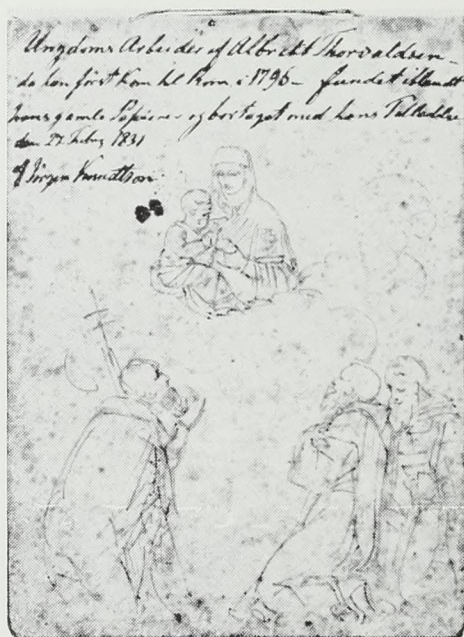 Ungdoms Arbeider af Albrecht Thorvaldsen
da han först kom til Rom i 1796 – fundet iblandt
hans gamle Papirer og bortaget med hans Tilladelse
den 27 Febr 1831
Jörgen